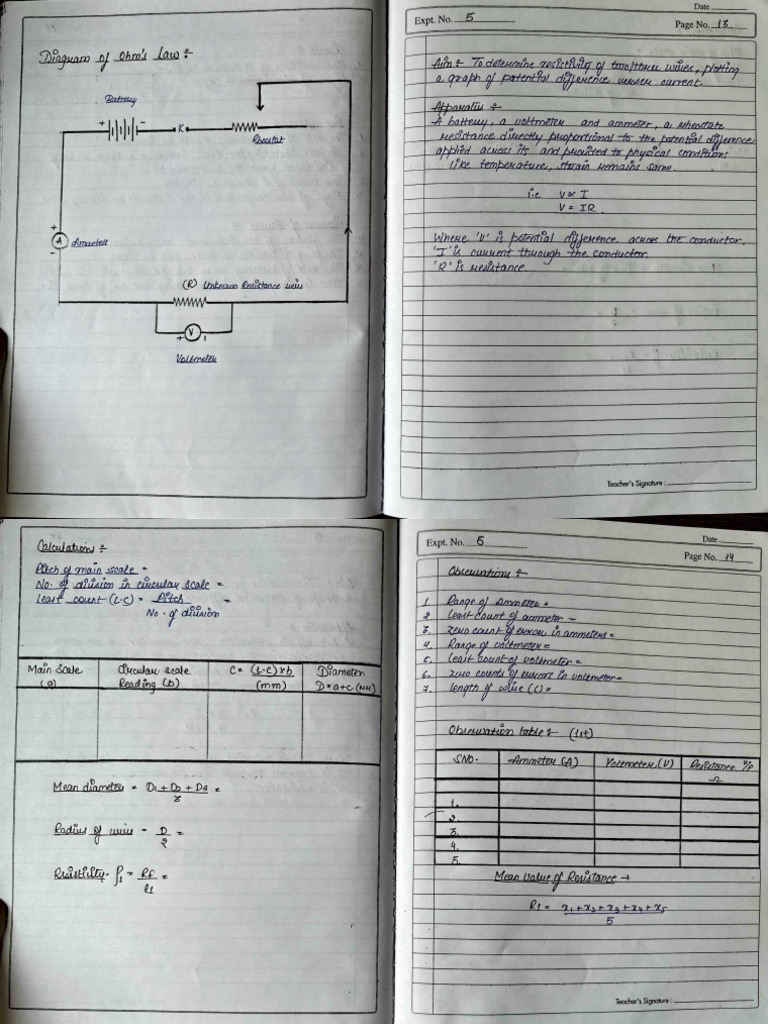 Diagram of Ohm's Law :-
Battery
+ -
K
Rheostat
+
A
-
(R) Unknown Resistance wire
+ V
Voltmeter
Date
Expt. No. 5
Page No. 13.
Aim :- To determine resistivity of two/three wires, plotting
a graph of potential difference versus current.
Apparatus :-
A battery, a voltmeter and ammeter, a rheostate
resistance directly proportional to the potential difference
applied across its and provided to physical conditions
like temperature, strain remains same.
i.e V ∝ I
V = IR.
Where 'V' is potential difference across the conductor,
'I' is current through the conductor.
'R' is resistance.
Teacher's Signature :
Calculation :-
Pitch of main scale =
No. of division in circular scale =
Least count (L.C) = Pitch =
No. of division
Main Scale (a)
Circular scale Reading (b)
C = (L.C) x b (mm)
Diameter D = a+c (MM)
Mean diameter = D1 + D2 + D3 =
3
Radius of wire = D =
2
Resistivity
l1
Date
Expt. No. 5
Page No. 14
Observations :-
1. Range of ammeter =
2. Least count of ammeter =
3. Zero count of errors in ammeters =
4. Range of voltmeter =
5. Least count of voltmeter =
6. Zero counts of errors in voltmeter =
7. Length of wire (L) =
Observation table :- (1st)
SNO. Ammeter (A) Voltmeter (V) Resistance V/P Ω
1.
2.
3.
4.
5.
Mean Value of Resistance →
R1 = x1+x2+x3+x4+x5
5
Teacher's Signature :